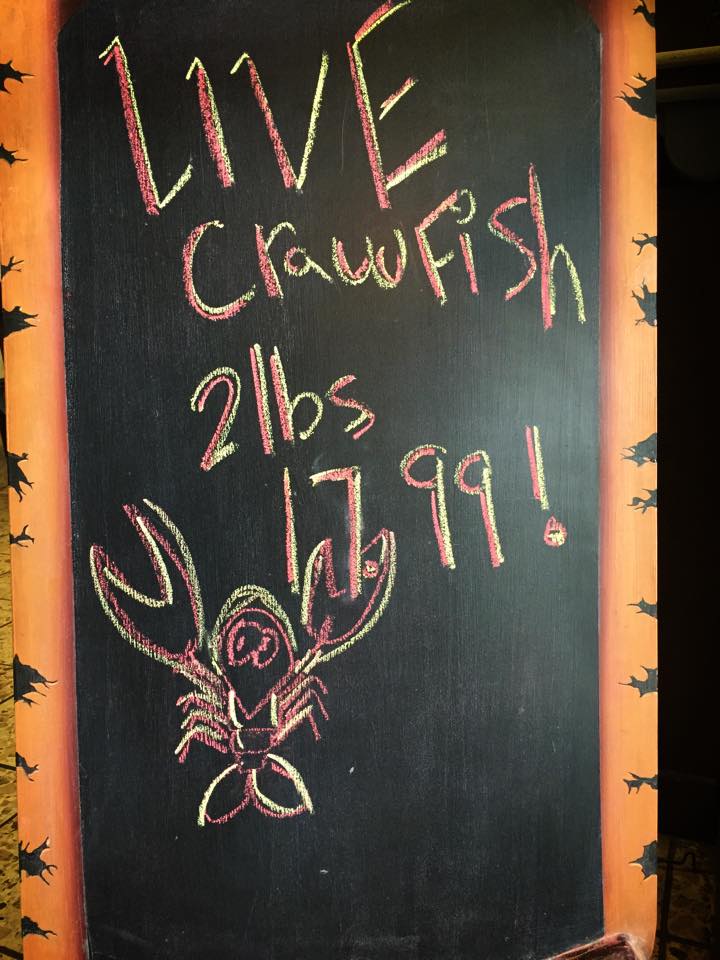 LIVE
CrawFish
2lbs
17.99!